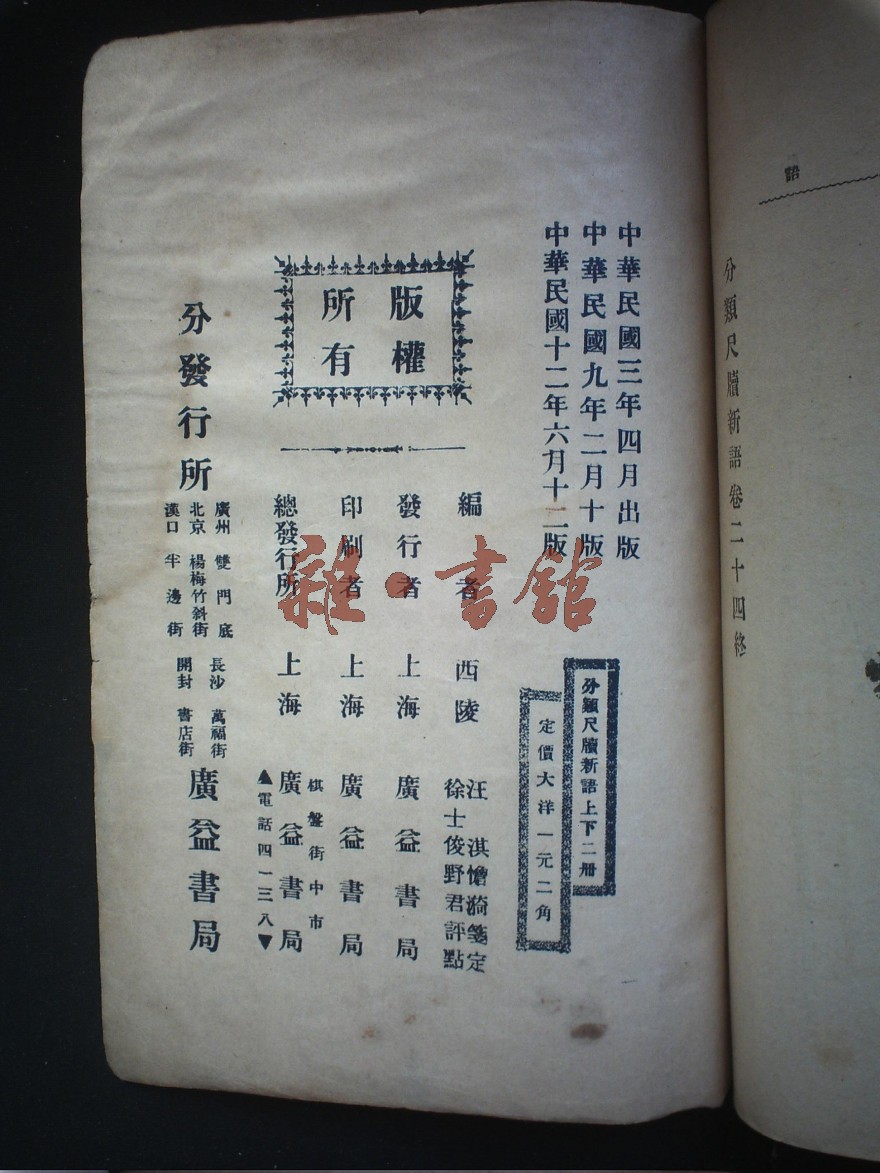 語
分類尺牘新語卷二十四終
中華民國三年四月出版
中華民國九年二月十版
中華民國十二年六月十二版
分類尺牘新語上下二册
定價大洋一元二角
版權
所有
編者 西陵 汪淇憺漪箋定
徐士俊野君評點
發行者 上海 廣益書局
印刷者 上海 廣益書局
棋盤街中市
總發行所 上海 廣益書局
▲電話四一三八▼
分發行所
廣州 雙門底
北京 楊梅竹斜街
漢口 半邊街
長沙 萬福街
開封 書店街
廣益書局
雜·書館